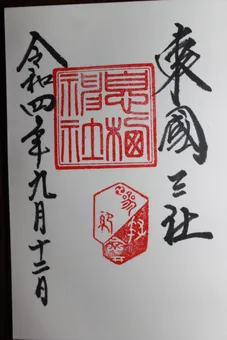 東國三社
息栖神社
参拝
令和四年九月十二日